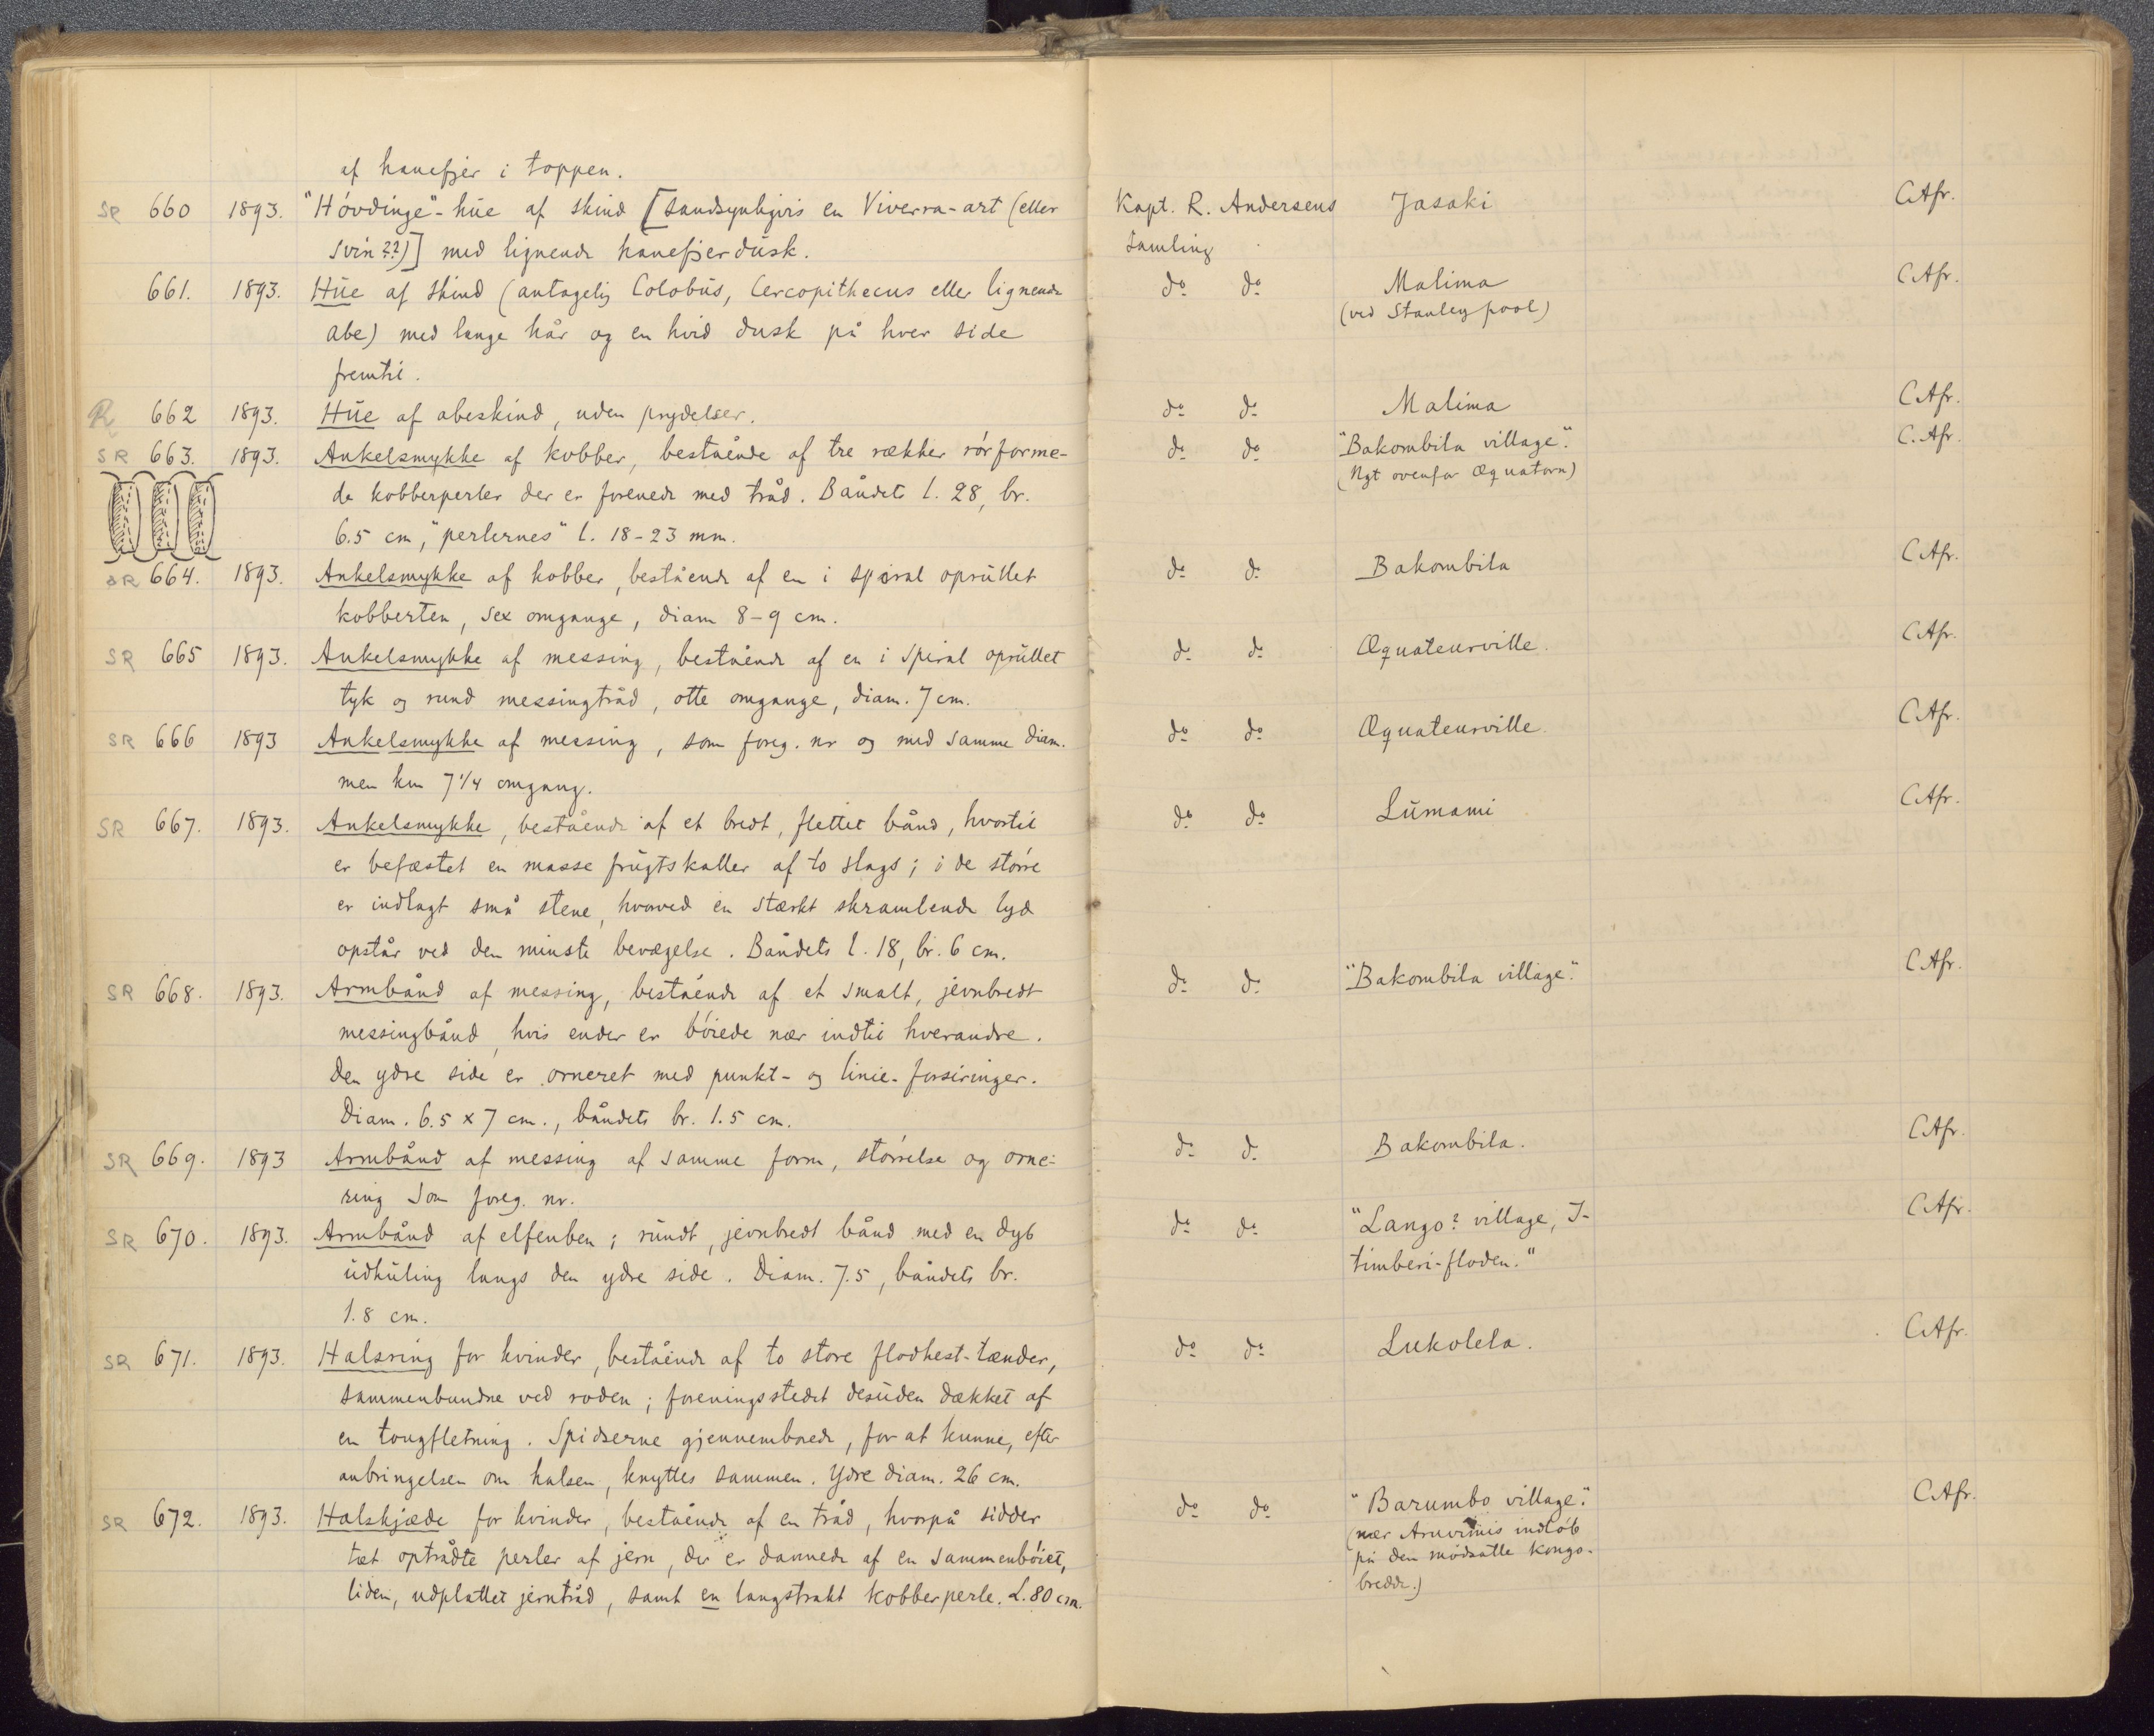 af hanefjer i toppen.
SR 660 1893. "Høvdinge"-hue af skind [sandsynligvis en Viverra-art (eller Kapt. R. Andersens Jasaki C.Afr.
svin??)] med lignende hanefjerdusk. samling
661. 1893. Hue af skind (antagelig Colobus, Cercopithecus eller lignende do do Malima C.Afr.
abe) med lange hår og en hvid dusk på hver side (ved Stanley pool)
fremtil.
R 662 1893. Hue af abeskind, uden prydelser. do do Malima C.Afr.
SR 663. 1893. Ankelsmykke af kobber, bestående af tre rækker rørforme- do do "Bakombila village". C.Afr.
de kobberperler der er forenede med tråd. Båndets l. 28, br. (Ngt ovenfor Æquatorn)
6.5 cm, "perlernes" l. 18-23 mm.
SR 664. 1893. Ankelsmykke af kobber, bestående af en i spiral oprullet do do Bakombila C.Afr.
kobberten, sex omgange, diam 8-9 cm.
SR 665 1893. Ankelsmykke af messing, bestående af en i spiral oprullet do do Æquateurville. C.Afr.
tyk og rund messingtråd, otte omgange, diam. 7 cm.
SR 666 1893 Ankelsmykke af messing, som foreg. nr og med samme diam. do do Æquateurville. C.Afr.
men kun 7 1/4 omgang.
SR 667. 1893. Ankelsmykke, bestående af et bredt, flettet bånd, hvortil do do Lumami C.Afr.
er befæstet en masse frugtskaller af to slags; i de større
er indlagt små stene, hvorved en stærkt skramlende lyd
opstår ved den minste bevægelse. Båndets l. 18, br. 6 cm.
SR 668. 1893. Armbånd af messing, bestående af et smalt, jevnbredt do do "Bakombila village". C.Afr.
messingbånd, hvis ender er bøiede nær indtil hverandre.
Den ydre side er orneret med punkt- og linie-forsiringer.
Diam. 6.5 x 7 cm., båndets br. 1.5 cm.
SR 669. 1893 Armbånd af messing af samme form, størrelse og orne- do do Bakombila. C.Afr.
ring som foreg. nr.
SR 670. 1893. Armbånd af elfenben; rundt, jevnbredt bånd med en dyb do do "Lango? village, I- C.Afr.
udhuling langs den ydre side. Diam. 7.5, båndets br. timberi-floden."
1.8 cm.
SR 671. 1893. Halsring for kvinder, bestående af to store flodhest-tænder, do do Lukolela. C.Afr.
sammenbundne ved roden; foreningsstedet desuden dækket af
en tougfletning. Spidserne gjennemborede, for at kunne, efter
anbringelsen om halsen, knyttes sammen. Ydre diam. 26 cm.
SR 672. 1893. Halskjæde for kvinder, bestående af en tråd, hvorpå sidder do do "Barumbo village". C.Afr.
tæt optrådte perler af jern, der er dannede af en sammenbøiet, (nær Aruvimis indløb
liden, udplattet jerntråd, samt en langstrakt kobberperle. L. 80 cm. på den modsatte kongo-
bredde.)